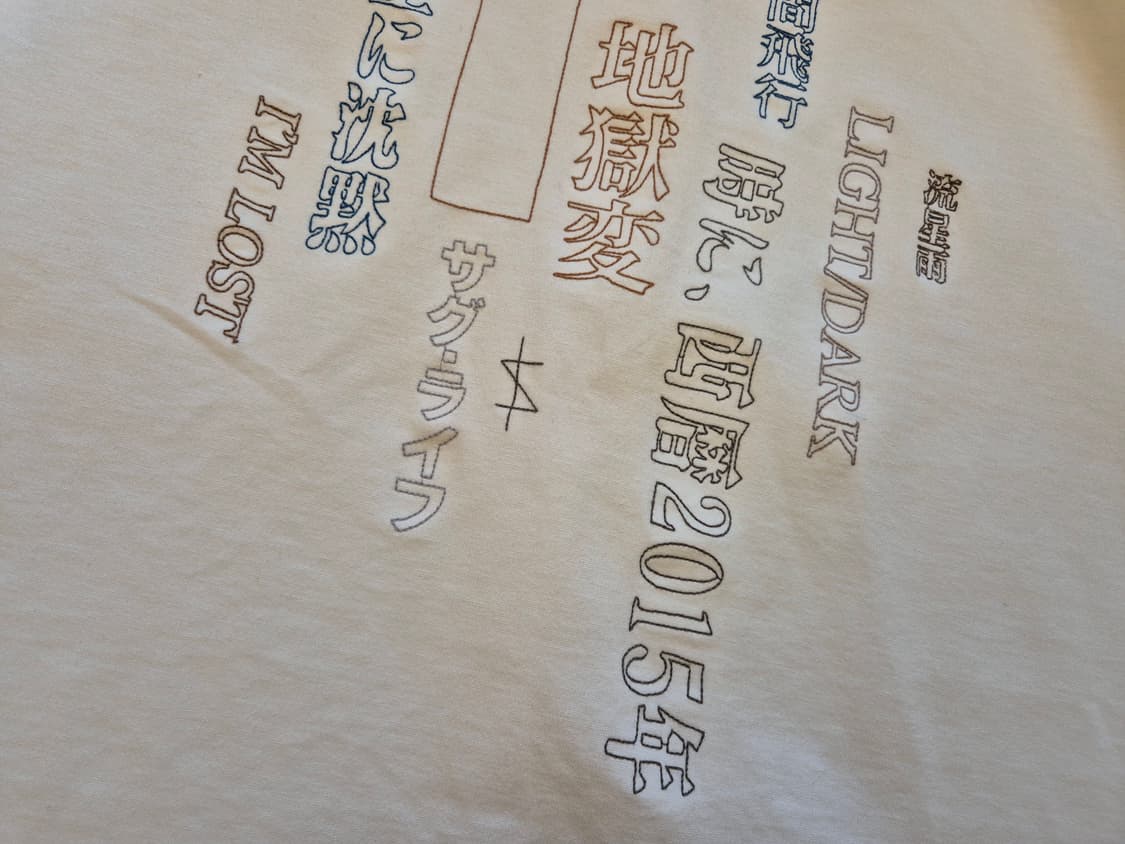 LIGHT/DARK
間飛行
時に、西暦2015年
地獄変
サグ・ライフ
に沈黙
I'M LOST